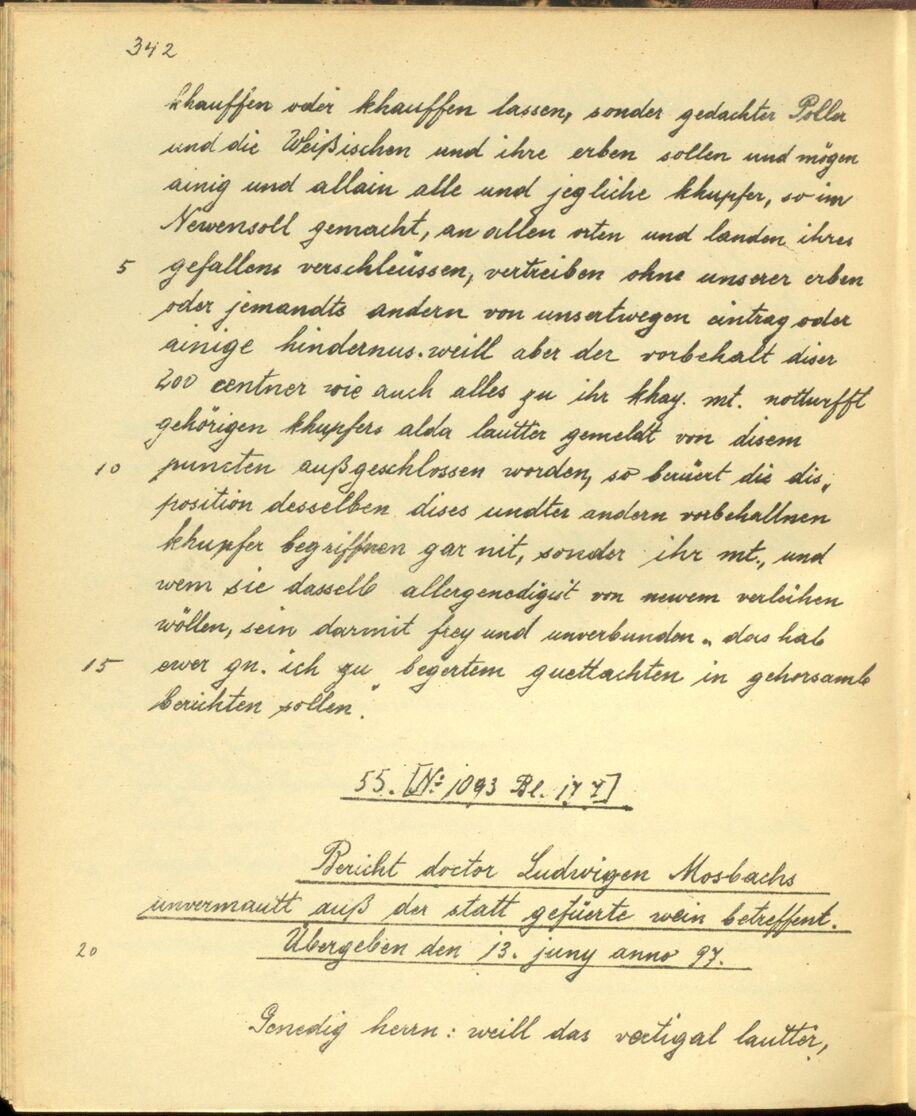 342
khauffen oder khauffen lassen, sonder gedachter Poller
und die Weißischen und ihre erben sollen und mögen
ainig und allain alle und jegliche khupfer, so im
Newensoll gemacht, an allen orten und landen ihres
5 gefallens verschleüssen, vertreiben ohne unserer erben
oder jemandts andern von unsertwegen eintrag oder
ainige hindernus. weill aber der vorbehalt diser
200 centner wie auch alles zu ihr khay. mt. notturfft
gehörigen khupfers alda lautter gemeldt von disem
10 puncten außgeschlossen worden, so berüert die dis„
position desselben dises undter andern vorbehallnen
khupfer begriffnen gar nit, sonder ihr mt., und
wem sie dasselb allergenedigist von newem verleihen
wöllen, sein darmit frey und unverbunden„ das hab
15 ewer gn. ich zu begertem guettachten in gehorsamb
berichten sollen."
55. [N: 1093 Bl. 177]
Bericht doctor Ludwigen Mosbachs
unvermautt auß der statt gefüerte wein betreffent.
20 Übergeben den 13. juny anno 97.
Genedig herrn: weill das vectigal lautter,